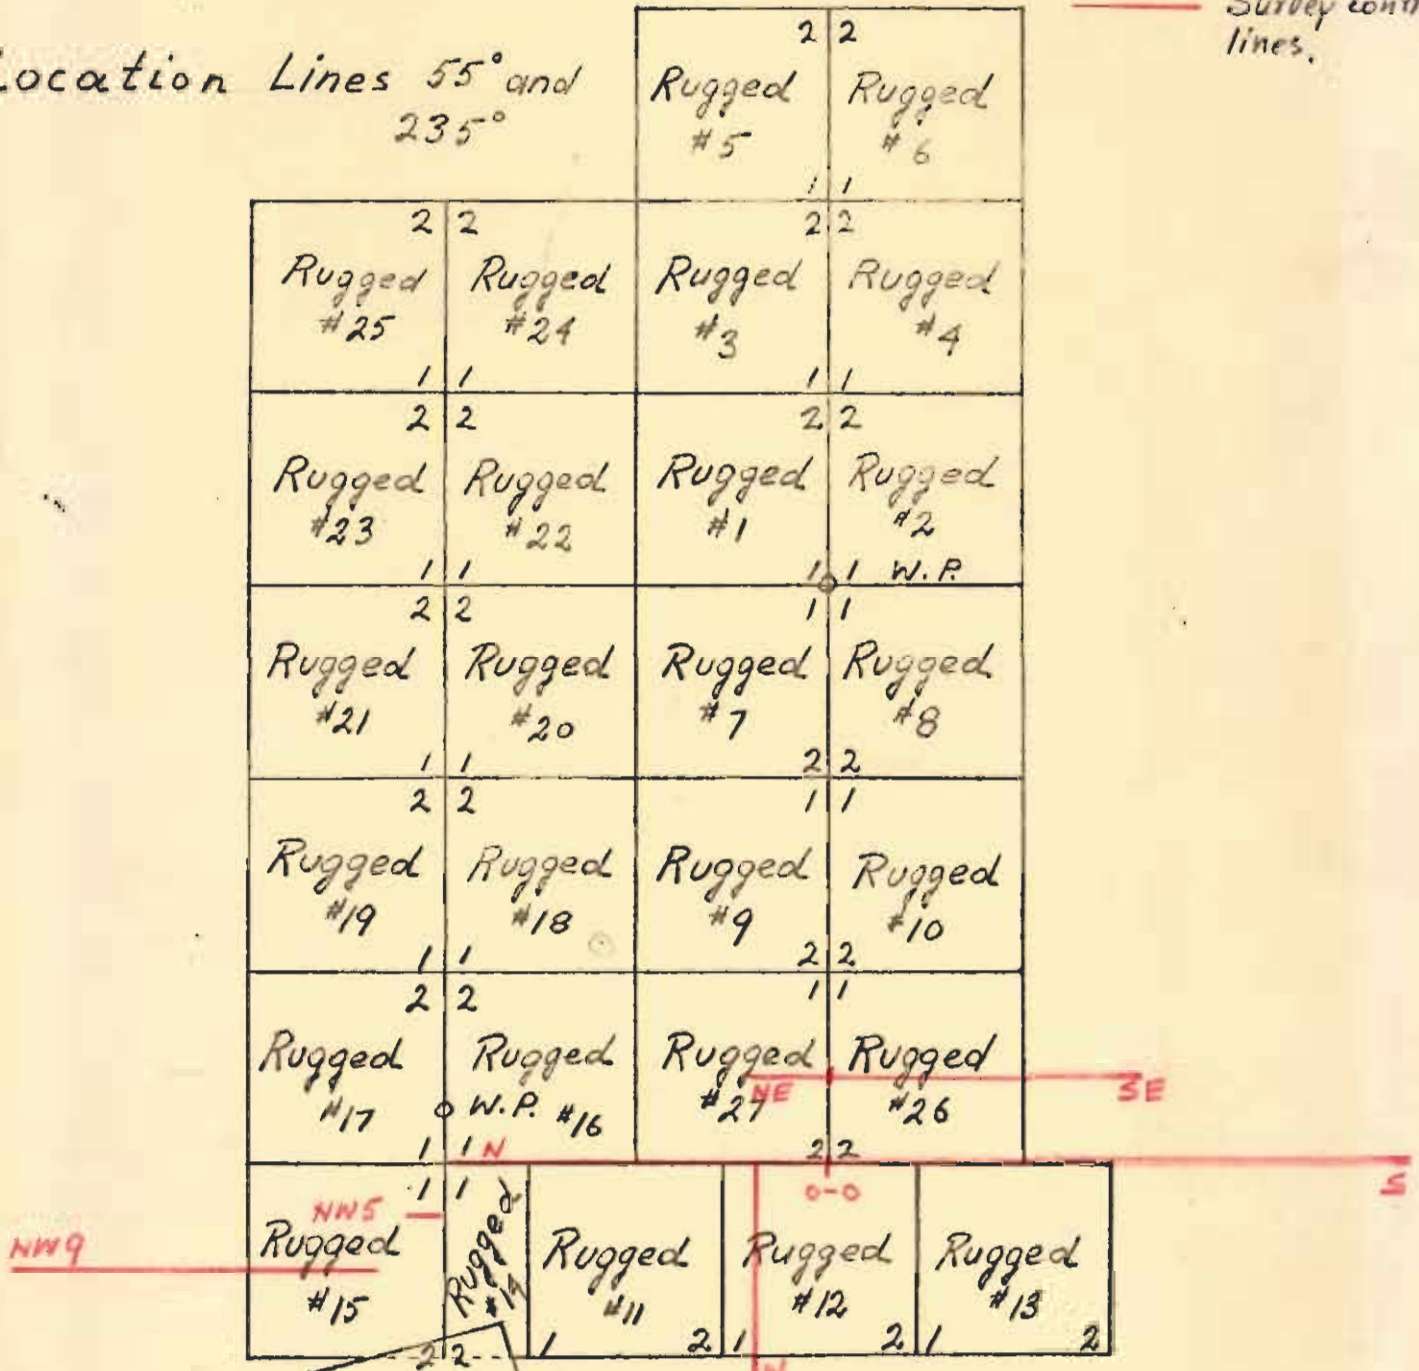 Survey
lines.
Location Lines 55° and
235°
2 2
Rugged #5
Rugged #6
1 1
2 2 2 2
Rugged #25
Rugged #24
Rugged #3
Rugged #4
1 1 1 1
2 2 2 2
Rugged #23
Rugged #22
Rugged #1
Rugged #2
1 1 1 1 W.P.
2 2 1 1
Rugged #21
Rugged #20
Rugged #7
Rugged #8
1 1 2 2
2 2 1 1
Rugged #19
Rugged #18
Rugged #9
Rugged #10
1 1 2 2
2 2 1 1
Rugged #17
Rugged W.P. #16
Rugged #27
Rugged #26
NE SE
1 1 N 2 2
0-0 S
1 1
NW5
NW9
Rugged #15
Rugged #14
Rugged #11
Rugged #12
Rugged #13
2 2 1 2 1 2 1 2